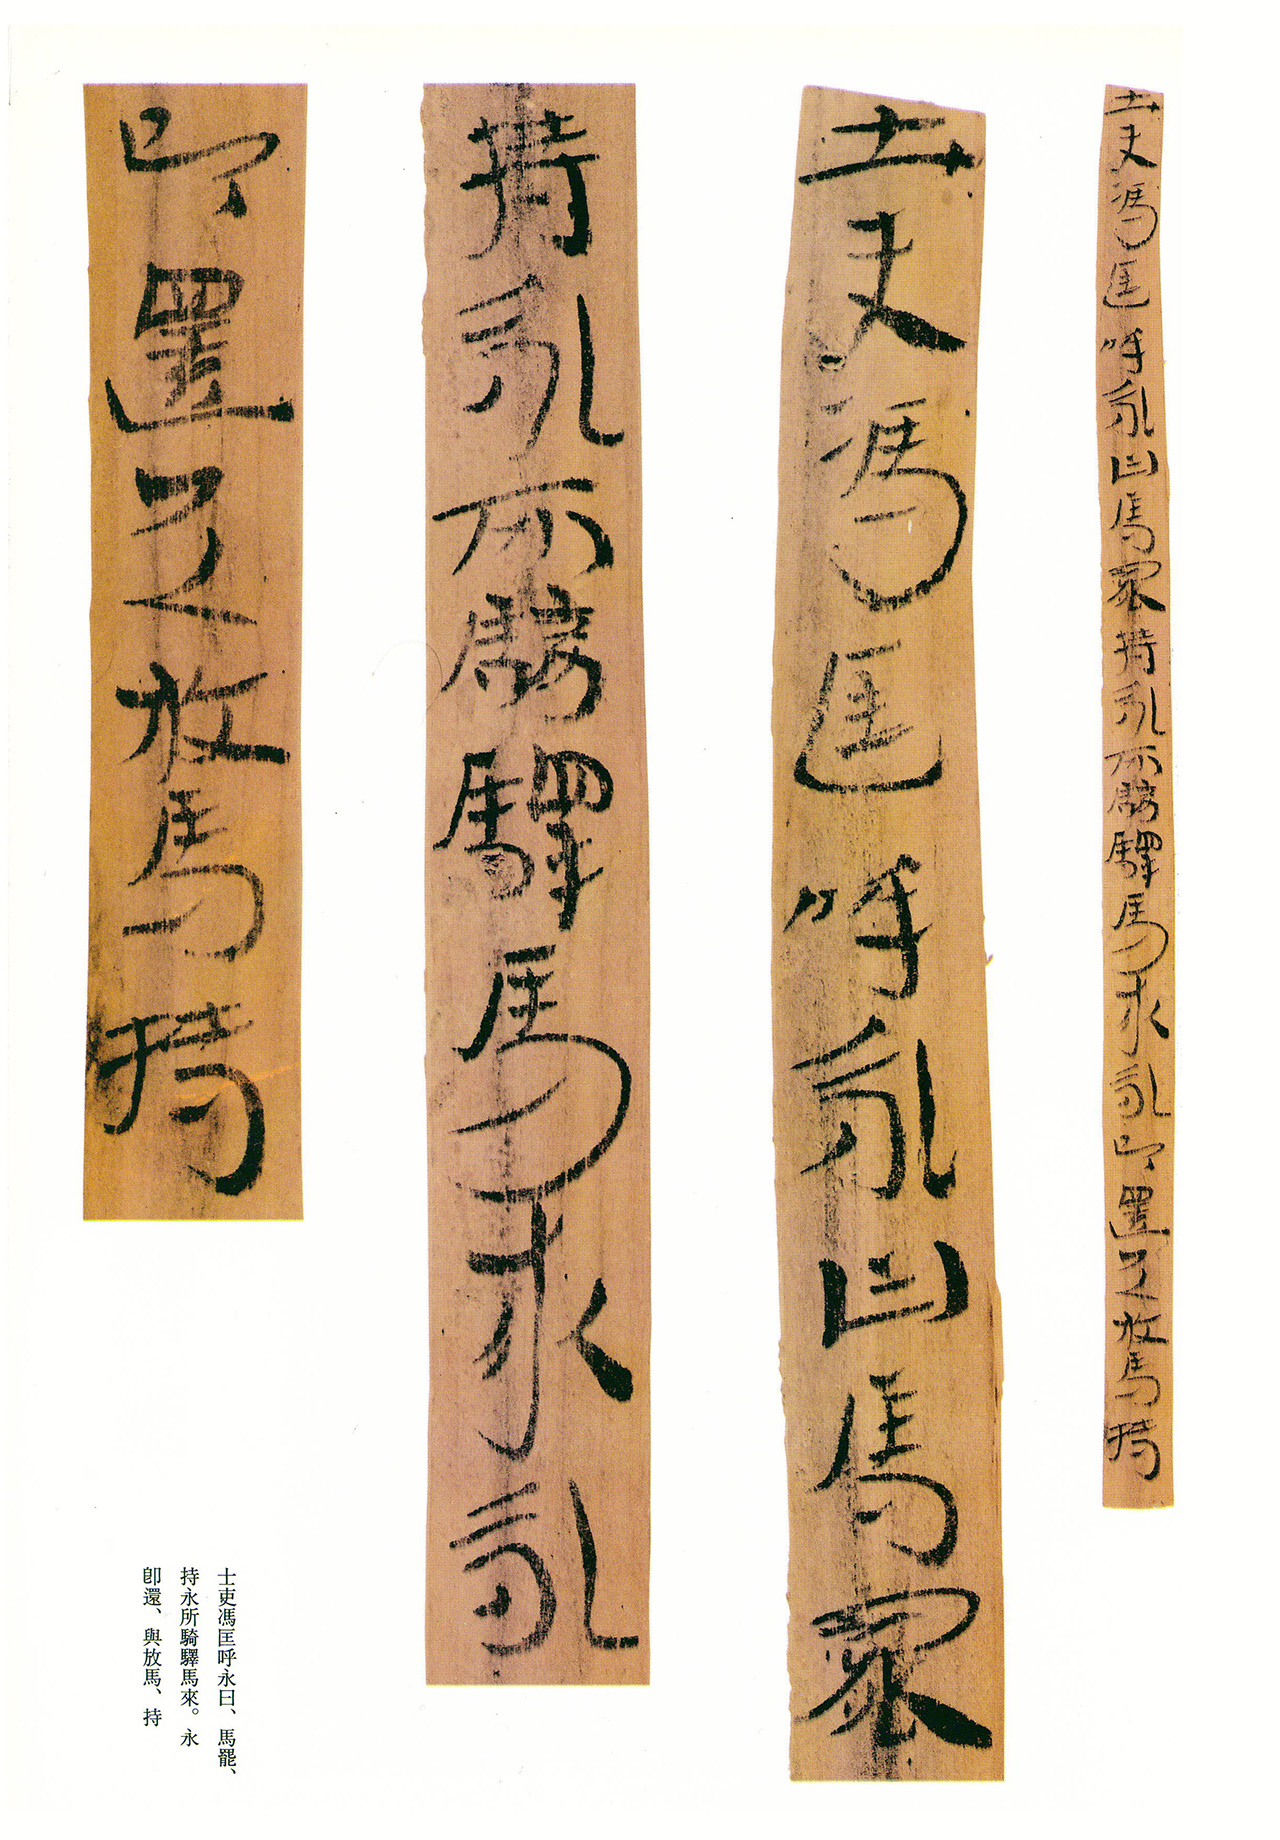 士吏馮匡呼永曰馬罷持永所騎驛馬來永即還與放馬持
士吏馮匡呼永曰馬罷
持永所騎驛馬來永
即還與放馬持
士吏馮匡呼永曰、馬罷、
持永所騎驛馬來。永
卽還、與放馬、持